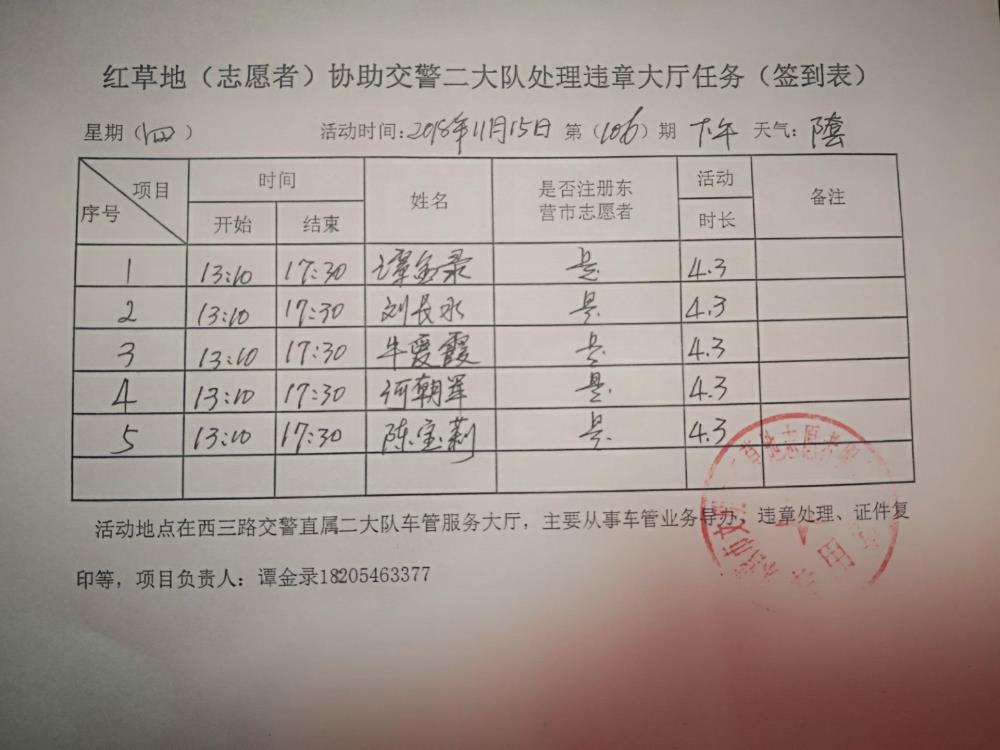 红草地（志愿者）协助交警二大队处理违章大厅任务（签到表）
星期（四） 活动时间:2018年11月15日 第（106）期 下午 天气: 阴
项目 序号 时间 姓名 是否注册东营市志愿者 活动时长 备注
开始 结束
1 13:10 17:30 谭金录 是 4.3
2 13:10 17:30 刘长水 是 4.3
3 13:10 17:30 牛爱霞 是 4.3
4 13:10 17:30 何朝军 是 4.3
5 13:10 17:30 陈宝莉 是 4.3
活动地点在西三路交警直属二大队车管服务大厅，主要从事车管业务导办，违章处理、证件复
印等，项目负责人：谭金录18205463377